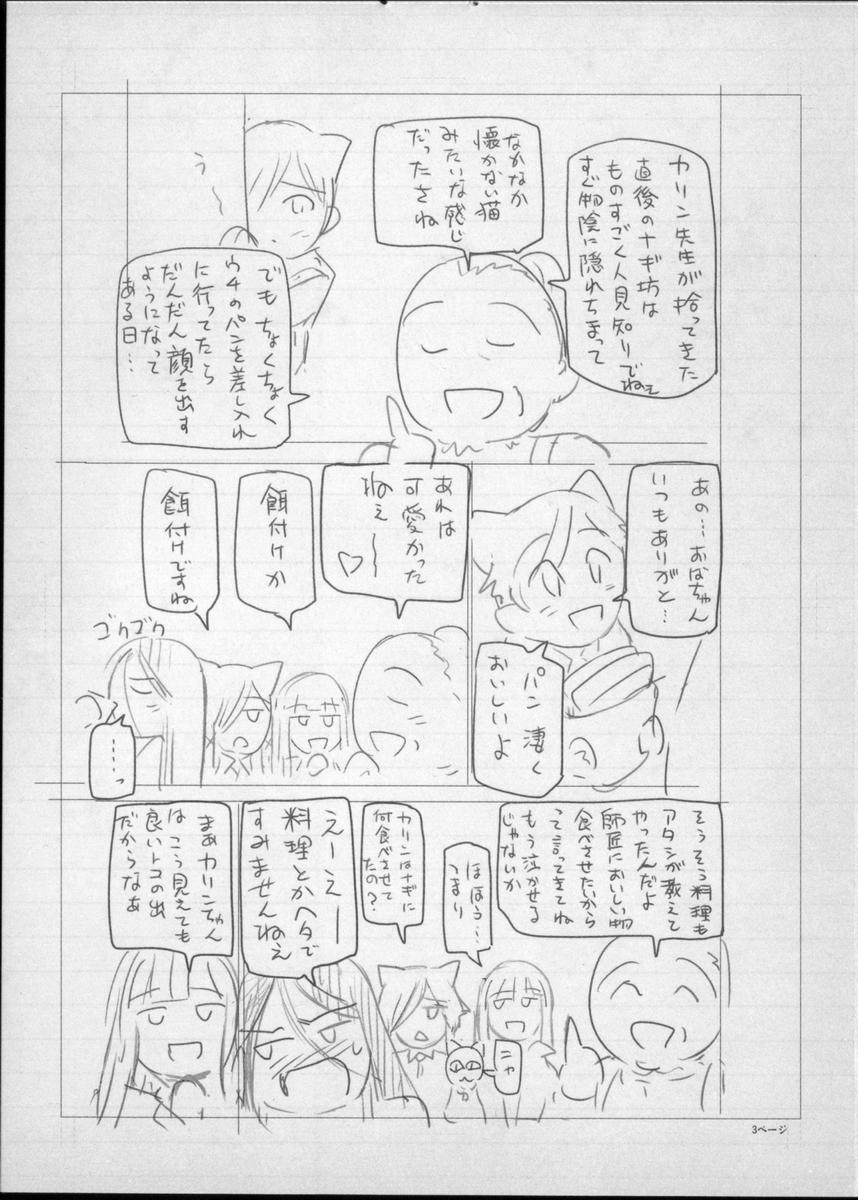 カリン先生が拾ってきた
直後のナギ坊は
ものすごく人見知りでねぇ
すぐ物陰に隠れちまって
なかなか
懐かない猫
みたいな感じ
だったさね
う
でもちょくちょく
ウチのパンを差し入れ
に行ってたら
だんだん顔を出す
ようになって
ある日…
あの…おばちゃん
いつもありがと…
パン凄く
おいしいよ
あれは
可愛かった
ねぇ〜♡
餌付けか
餌付けですね
ゴクゴク
……っ
そうそう料理も
アタシが教えて
やったんだよ
師匠においしい物
食べさせたいから
って言ってきてね
もう泣かせる
じゃないか
ほほう…
つまり
ニャ
カリンはナギに
何食べさせて
たの？
えーえー
料理とかヘタで
すみませんねえ
まあカリンちゃん
はこう見えても
良いトコの出
だからなあ
3ページ